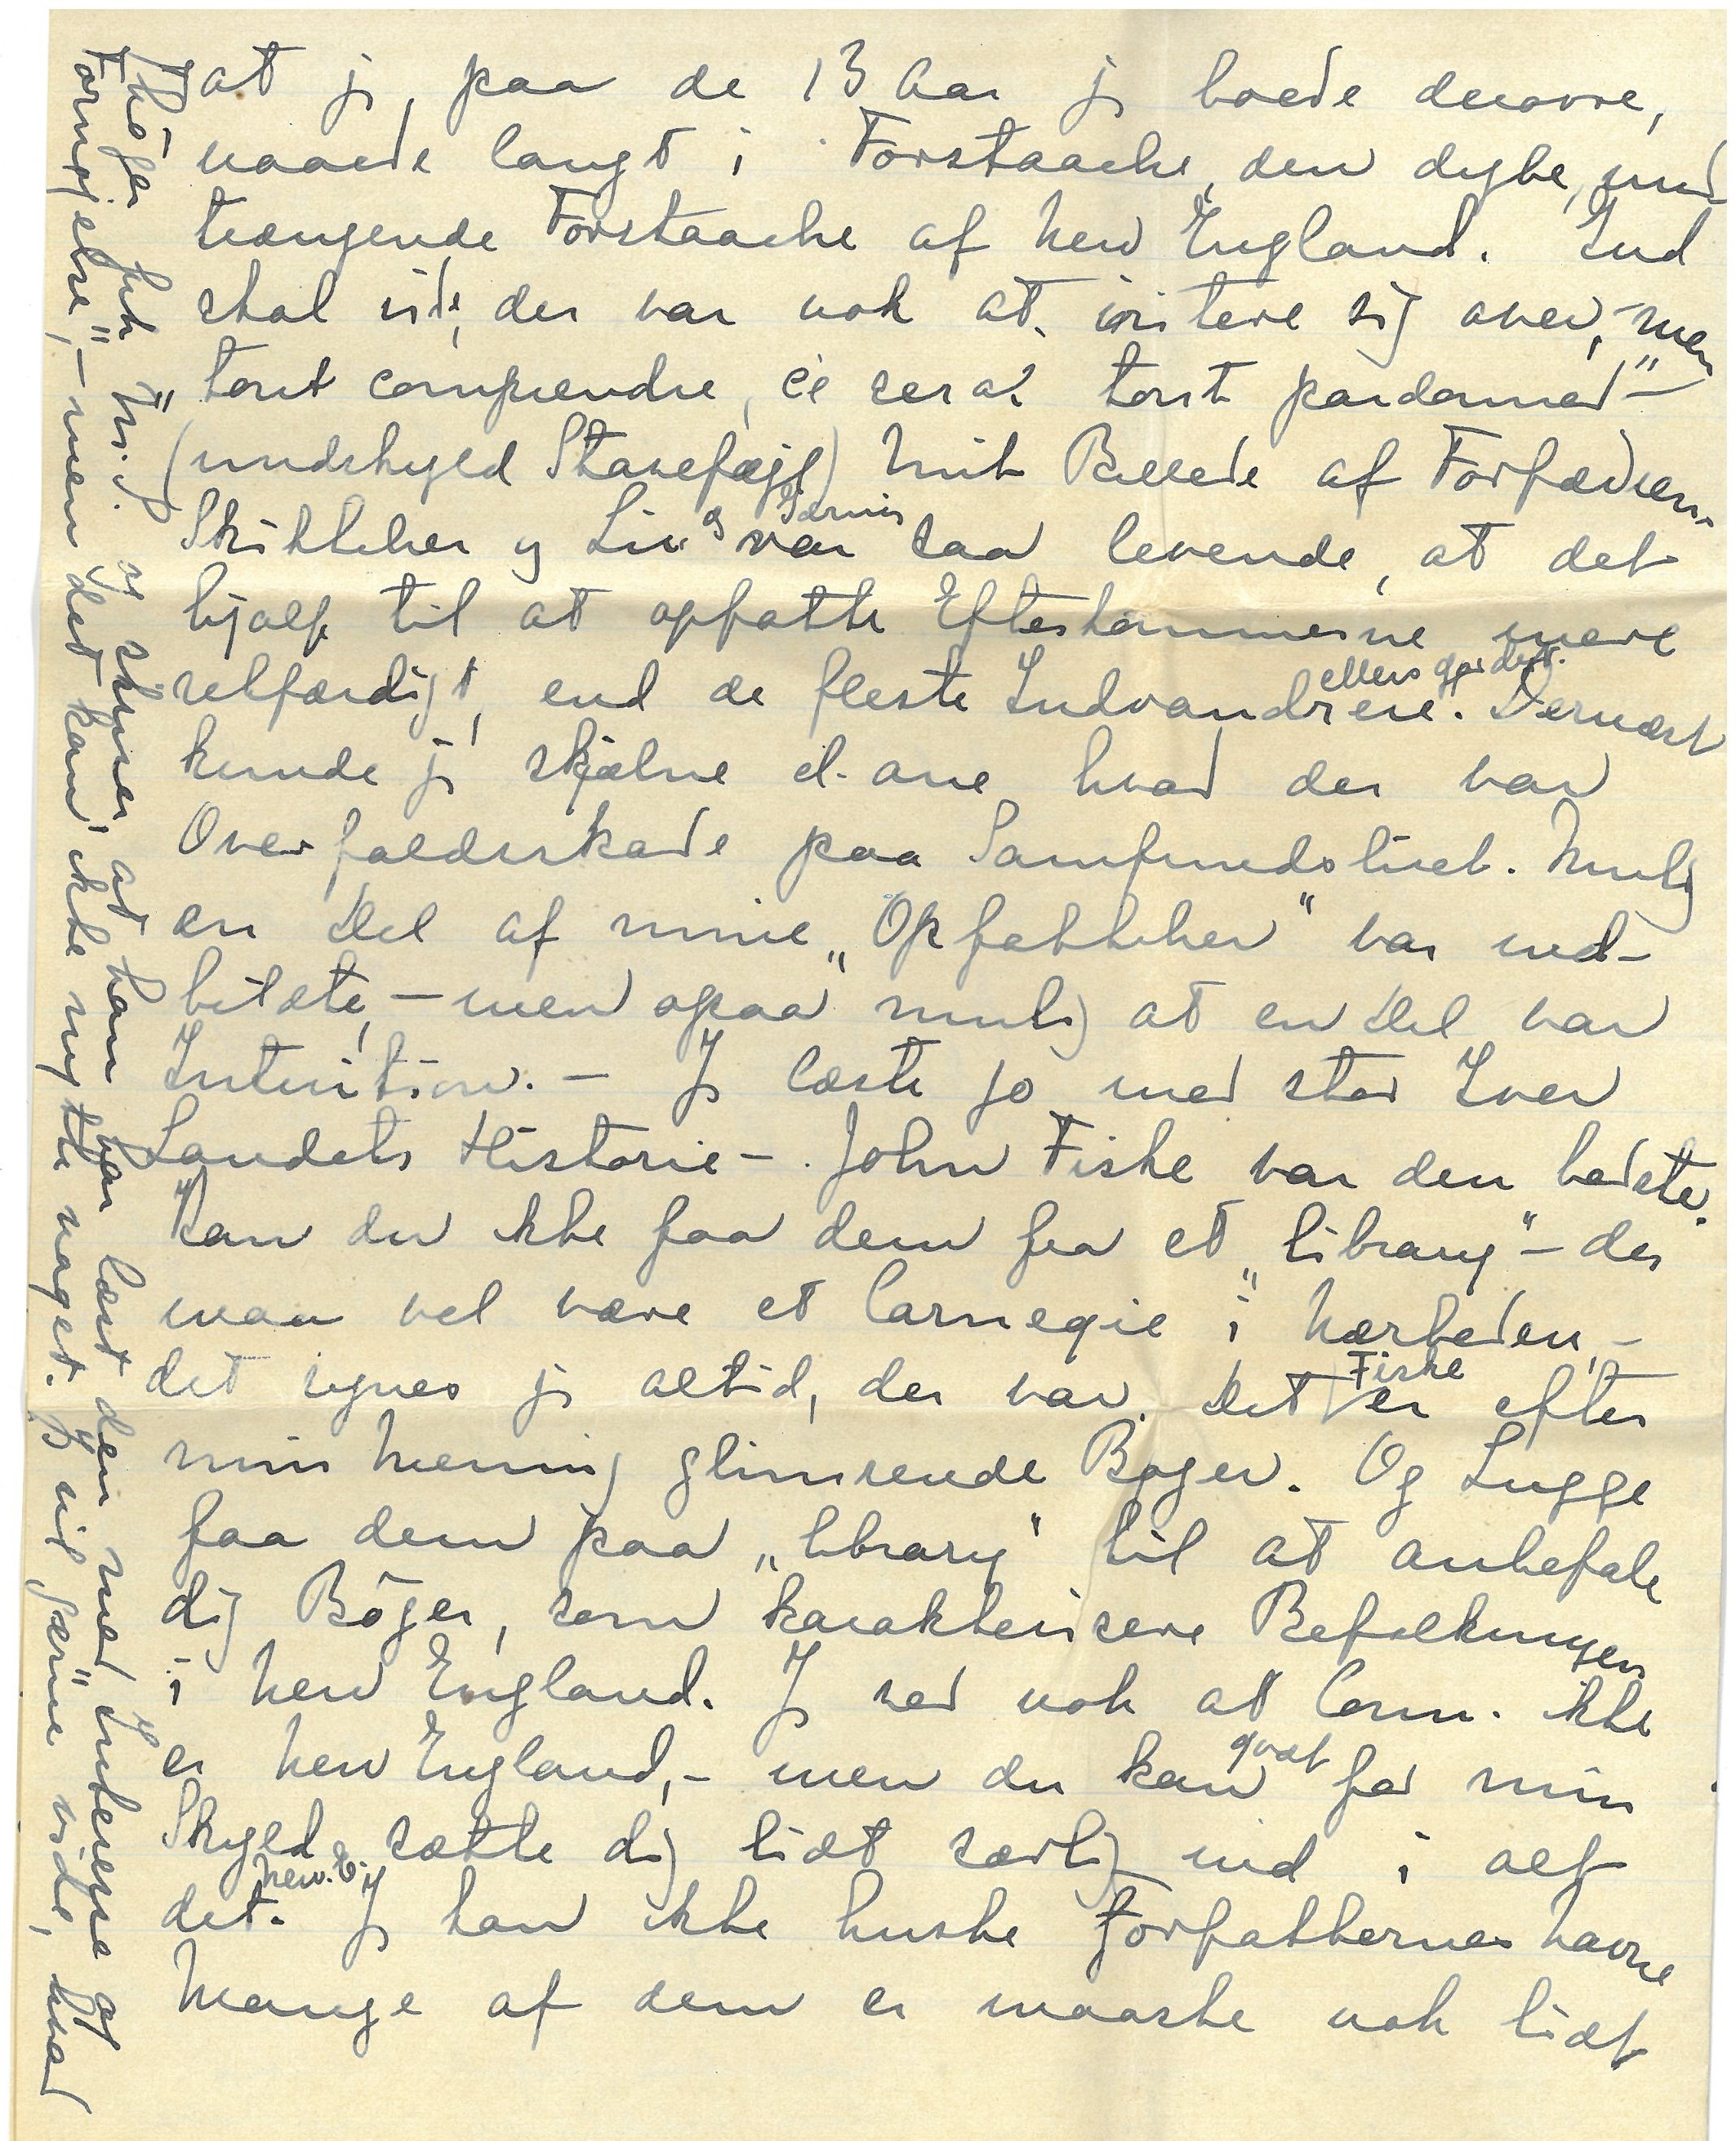 at jg, paa de 13 Aar jg boede derovre,
naaede langt i Forstaaelse, den dybe, ind
trængende Forstaaelse af New England. Gud
skal vide, der var nok at irritere sig over, men
"tout comprendre, ce serat tout pardonner" –
(undskyld Stavefejl) Mit Billede af Forfædrenes
Skikkelser og Liv og Gærning var saa levende, at det
hjalp til at opfatte Efterkommerne mere
retfærdigt, end de fleste Indvandrere ellers gør det. Dernæst
kunde jg skjælne el. ane hvad der var
Overfladeskade paa Samfundslivet. Mulig
en Del af mine „Opfattelser" var ind-
bildte, – men ogsaa mulig at en Del var
Intuition. – Jg læste jo med stor Iver
Landets Historie –. John Fiske var den bedste.
Kan du ikke faa dem fra et „library" – der
maa vel være et „Carnegie" i Nærheden, –
det synes jg altid, der var. Det Fiske er efter
min Mening glimrende Bøger. Og Lugge
faa dem paa „library" til at anbefale
dig Bøger, som karakterisere Befolkningen
i New England. Jg ved nok at Conn. ikke
er New England, – men du kan godt for min
Skyld sætte dig lidt særlig ind i alt
det New. E. Jg kan ikke huske Forfatternes Navne
Mange af dem er maaske nok lidt
Fornøjelse," – men det kan ikke nytte noget. Jg vil gærne vide, hvad